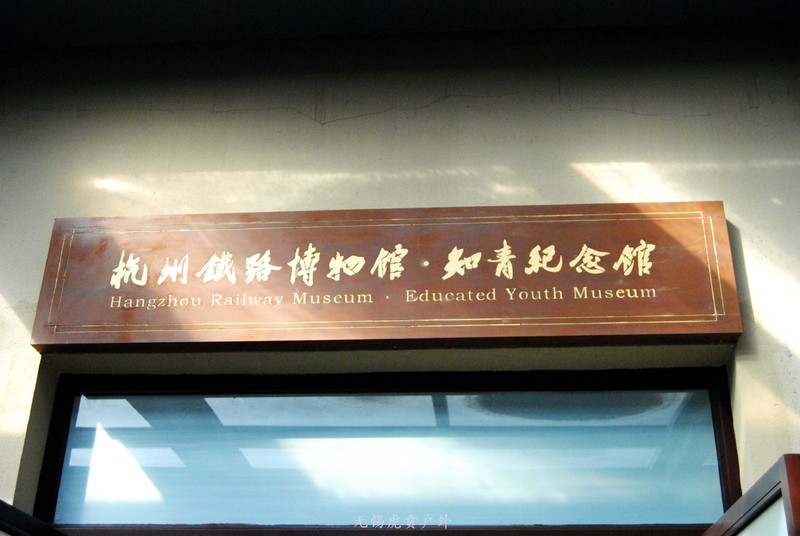 杭州鐵路博物館·知青紀念館
Hangzhou Railway Museum · Educated Youth Museum
无锡虎贲户外